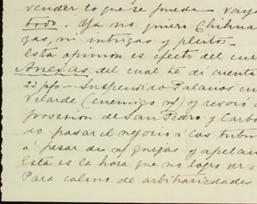 vender lo que se pueda vaya
todo. Ya no quiero Chihua
gas, ni intrigas y pleitos.
Esta opinión es efecto del cur
Anexas, del cual te di cuenta
23 ppo - Suspendido Palacios en
Velarde (enemigo n/) y revocó
posesión de San Pedro y Carbo
do pasar el negocio a los tribu
á pesar de n/ quejas y apelaci
Esta es la hora que no logro ver
Para colmo de arbitrariedades